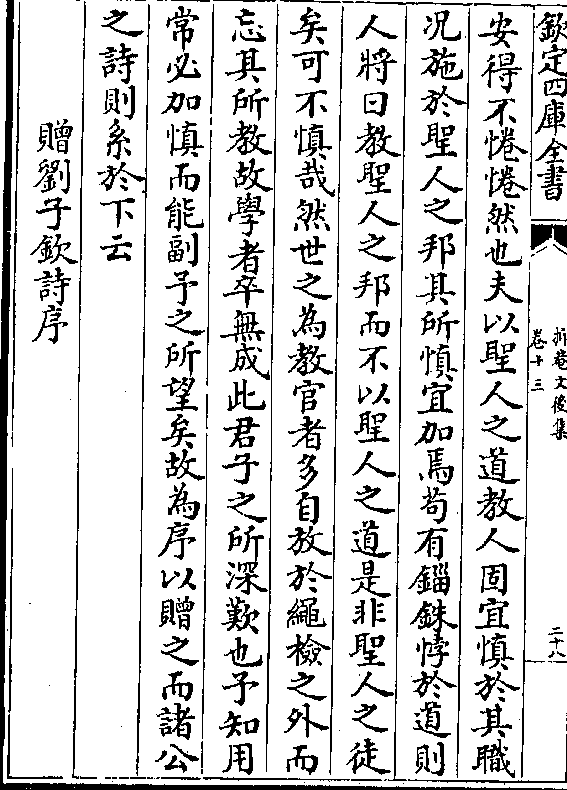 欽定四庫全書
抑菴文後集
卷十三
二十八
安得不惓惓然也夫以聖人之道教人固宜慎於其職
况施於聖人之邦其所慎宜加焉苟有錙銖悖於道則
人將曰教聖人之邦而不以聖人之道是非聖人之徒
矣可不慎哉然世之為教官者多自放於繩檢之外而
忘其所教故學者卒無成此君子之所深歎也予知用
常必加慎而能副予之所望矣故為序以贈之而諸公
之詩則系於下云
贈劉子欽詩序